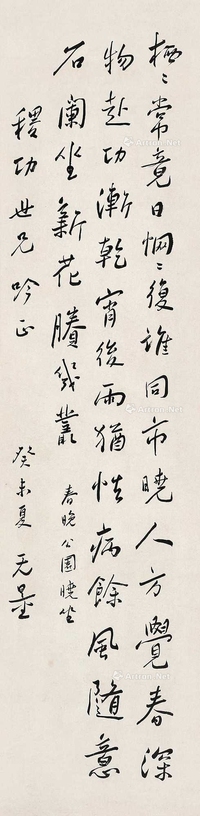 栖〻常竟日惘〻復誰同市曉人方覺春深
物赴功漸乾宵後雨猶怯病餘風隨意
石闌坐新花賸幾叢
春晚公園曉坐
稷功世兄吟正
癸未夏 无量